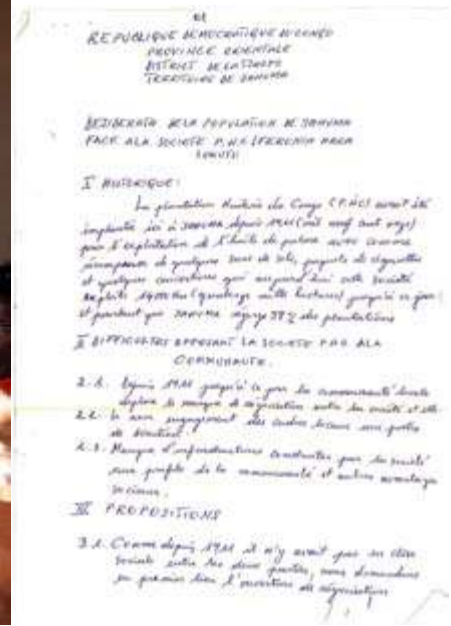 01
REPUBLIQUE DEMOCRATIQUE DU CONGO
PROVINCE ORIENTALE
DISTRICT DE LA TSHOPO
TERRITOIRE DE YAHUMA
DESIDERATA DE LA POPULATION DE YAHUMA
FACE A LA SOCIETE P.H.C / FERONIA
LOKUTU
I HISTORIQUE:
La plantation Huilerie du Congo (P.H.C) avait été
implantée ici à YAHUMA depuis 1911 (mil neuf cent onze)
pour l'exploitation de l'huile de palme avec comme
récompense de quelques sacs de sels, paquets de cigarettes
et quelques couvertures qui aujourd'hui cette société
exploite (quatorze mille hectares) jusqu'à ce jour;
et pourtant que YAHUMA des plantations
II DIFFICULTES OPPOSANT LA SOCIETE P.H.C A LA
COMMUNAUTE.
2.1. Depuis 1911 jusqu'à ce jour la communauté locale
déplore le manque de négociation entre la société et elle
2.2. Le non engagement des cadres locaux aux postes
de
2.3. Manque d'infrastructures construites par la société
aux profits de la communauté et autres avantages
sociaux.
III PROPOSITIONS
3.1. Comme depuis 1911 il n'y avait pas un
sociale entre les deux parties, nous demandons
en premier lieu l'ouverture de négociations